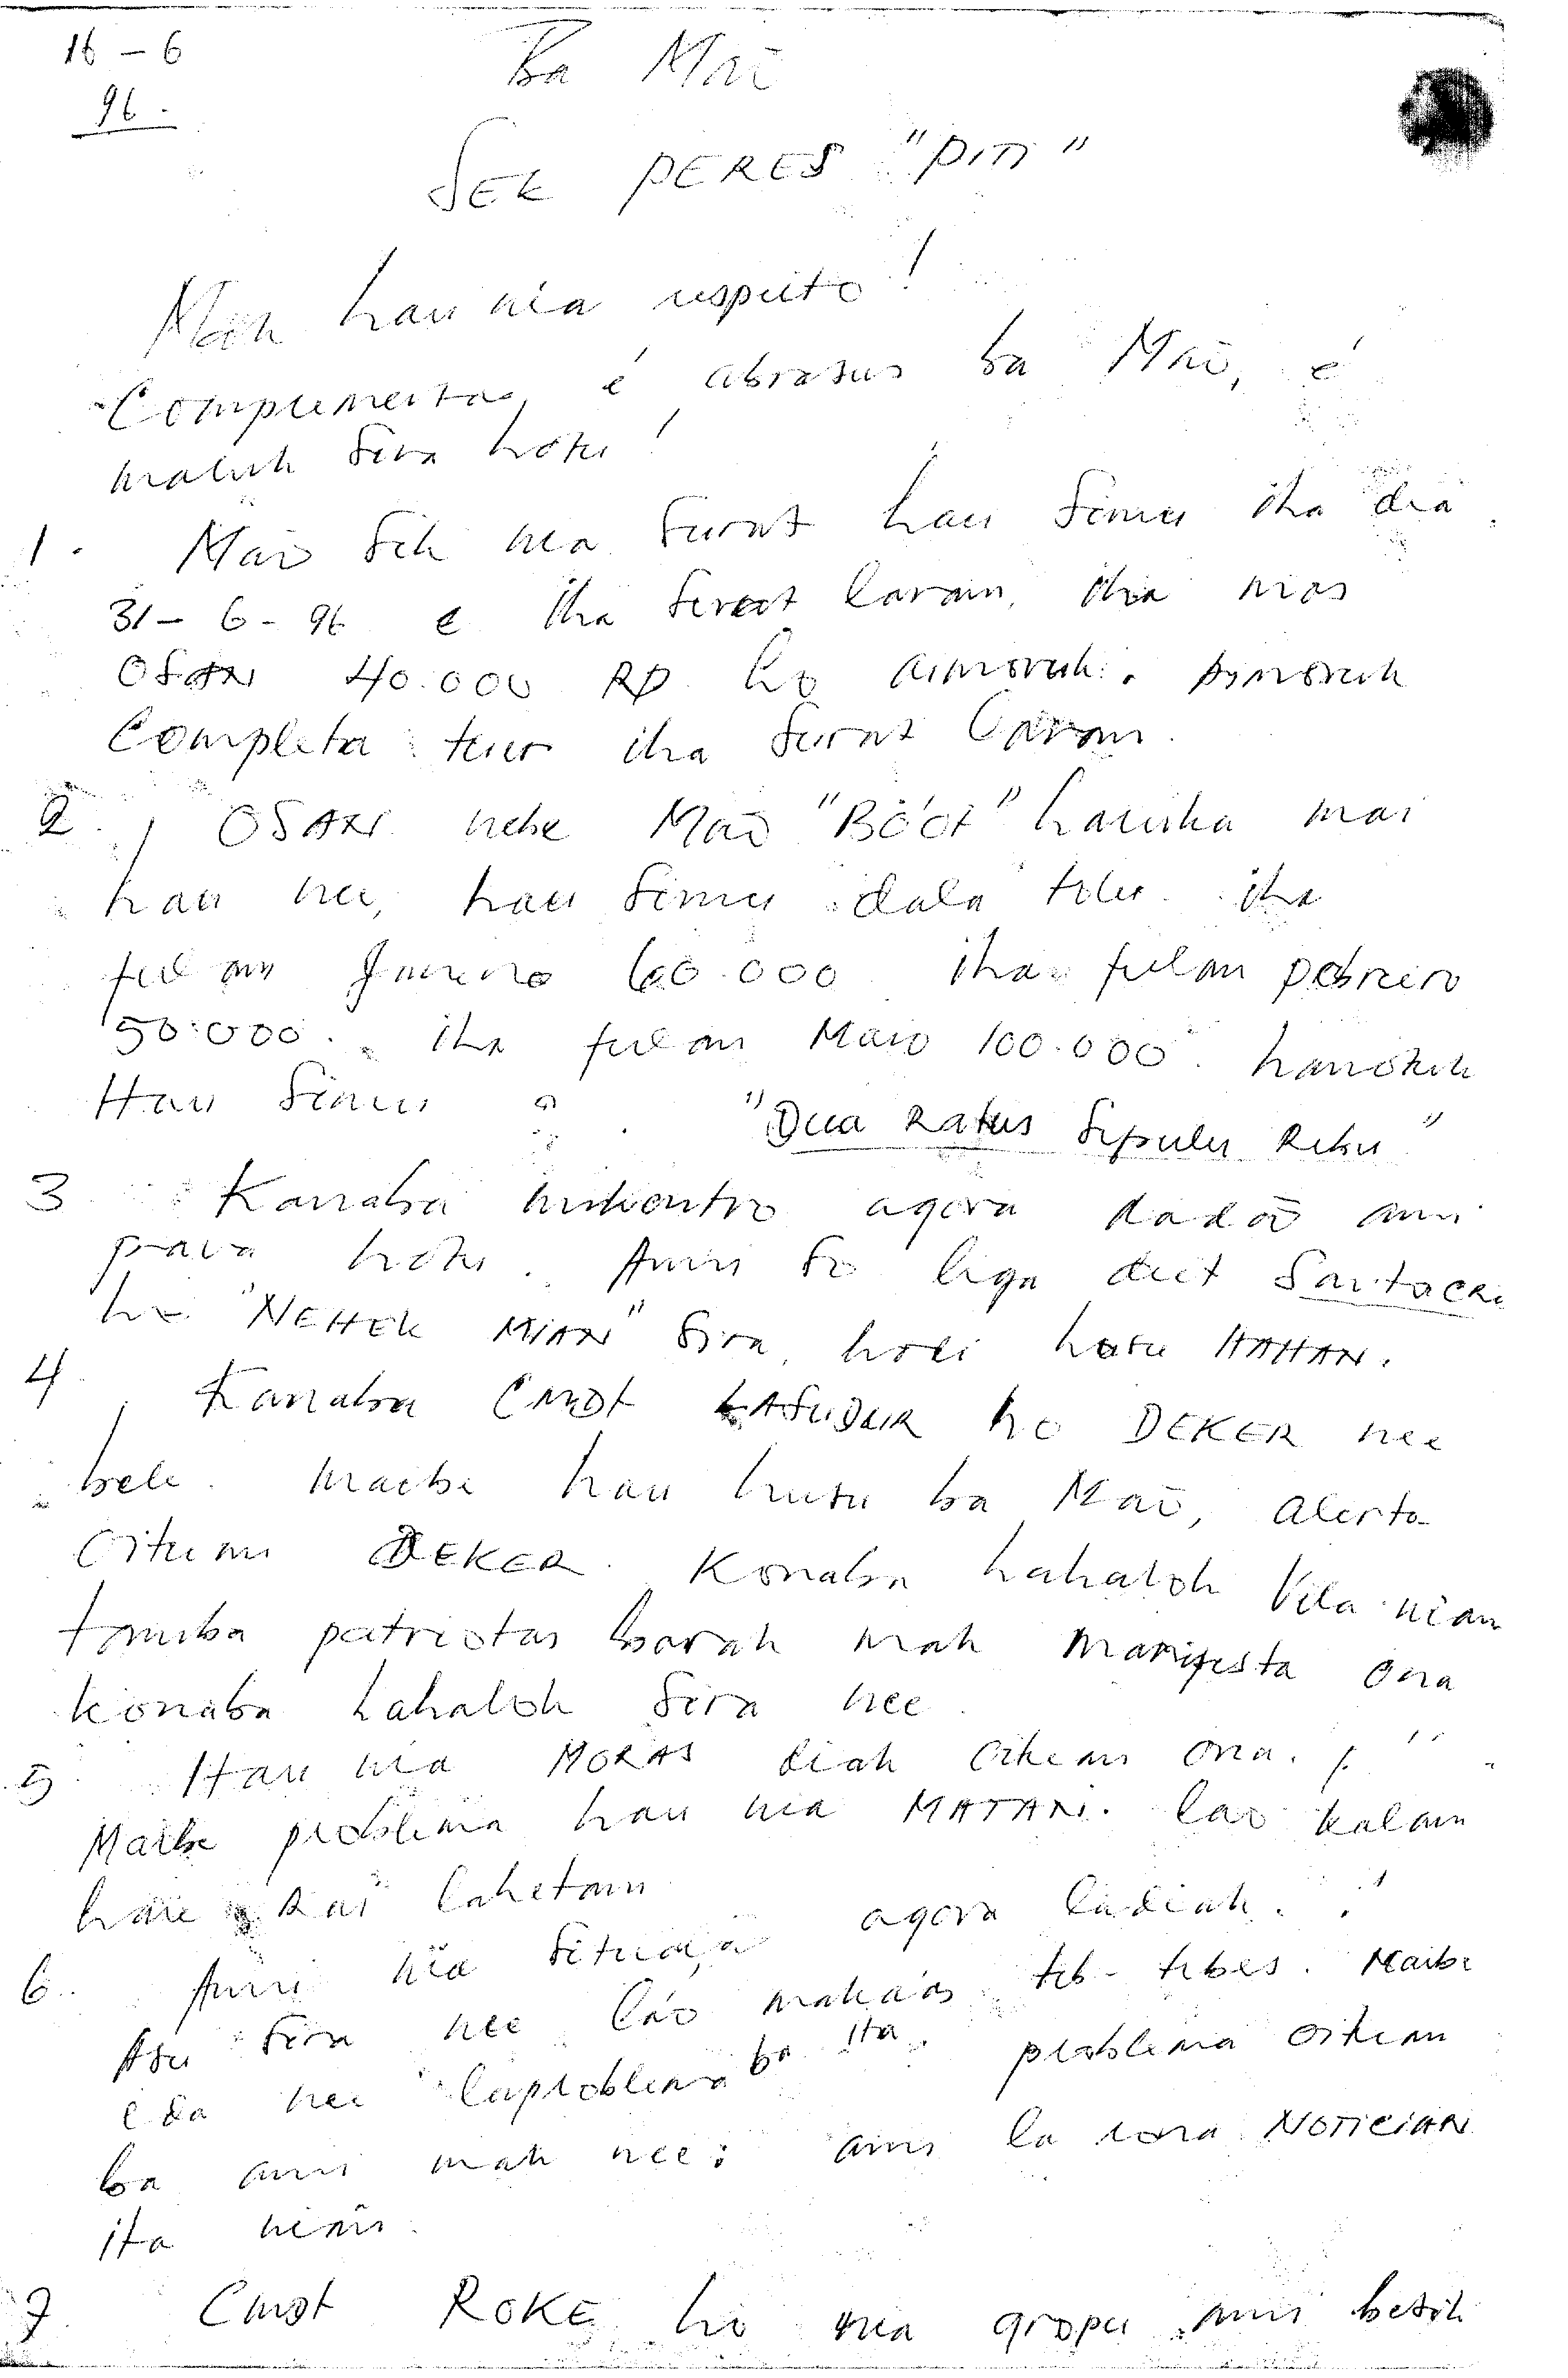 16 - 6
96.
Ba Maō
SEK PERES "PITI"
Maū hau nia respeito!
Comprimentas, é abrasus ba Maō, é
maluk sira hotu!
1. Maō Sek nia surat hau simu iha dia
31 - 6 - 96 e iha surat laran, iha mos
OSAN 40.000 RP ho aimoruk. Aimoruk
Completa tuir iha surat laran.
2. OSAN nebe Maō "BóóT" haruka mai
hau nee, hau simu dala tolu. iha
fulan Janeiro 60.000 iha fulan pebreiro
50.000. iha fulan Maio 100.000. hamutuk
Hau simu "Dua Ratus Sepulu Ribu"
3 Konaba enkontro agora dadaō ami
para hotu. Ami so liga deit
ho "NEHEK MIAN" sira, hodi hasu HAHAN.
4. Konaba Cmdt LASUDUR ho DEKER nee
bele. maibe hau husu ba Maō, alerta
oituan DEKER. Konaba hahalok Vila nian
tamba patriotas barak mak manifesta ona
konaba hahalok sira nee.
5. Hau nia MORAS diak oituan ona.
Maibe problema hau nia MATAN. lao kalan
hare rai lahetan agora ladiak.
6. Ami nia situasa
Asu sira nee lao makaas teb-tebes. Maibe
ida nee laproblema ba ita. problema oituan
ba ami mak nee: ami la rona NOTICIAN
ita nian.
7 Cmdt ROKE ho nia gropu ami besik